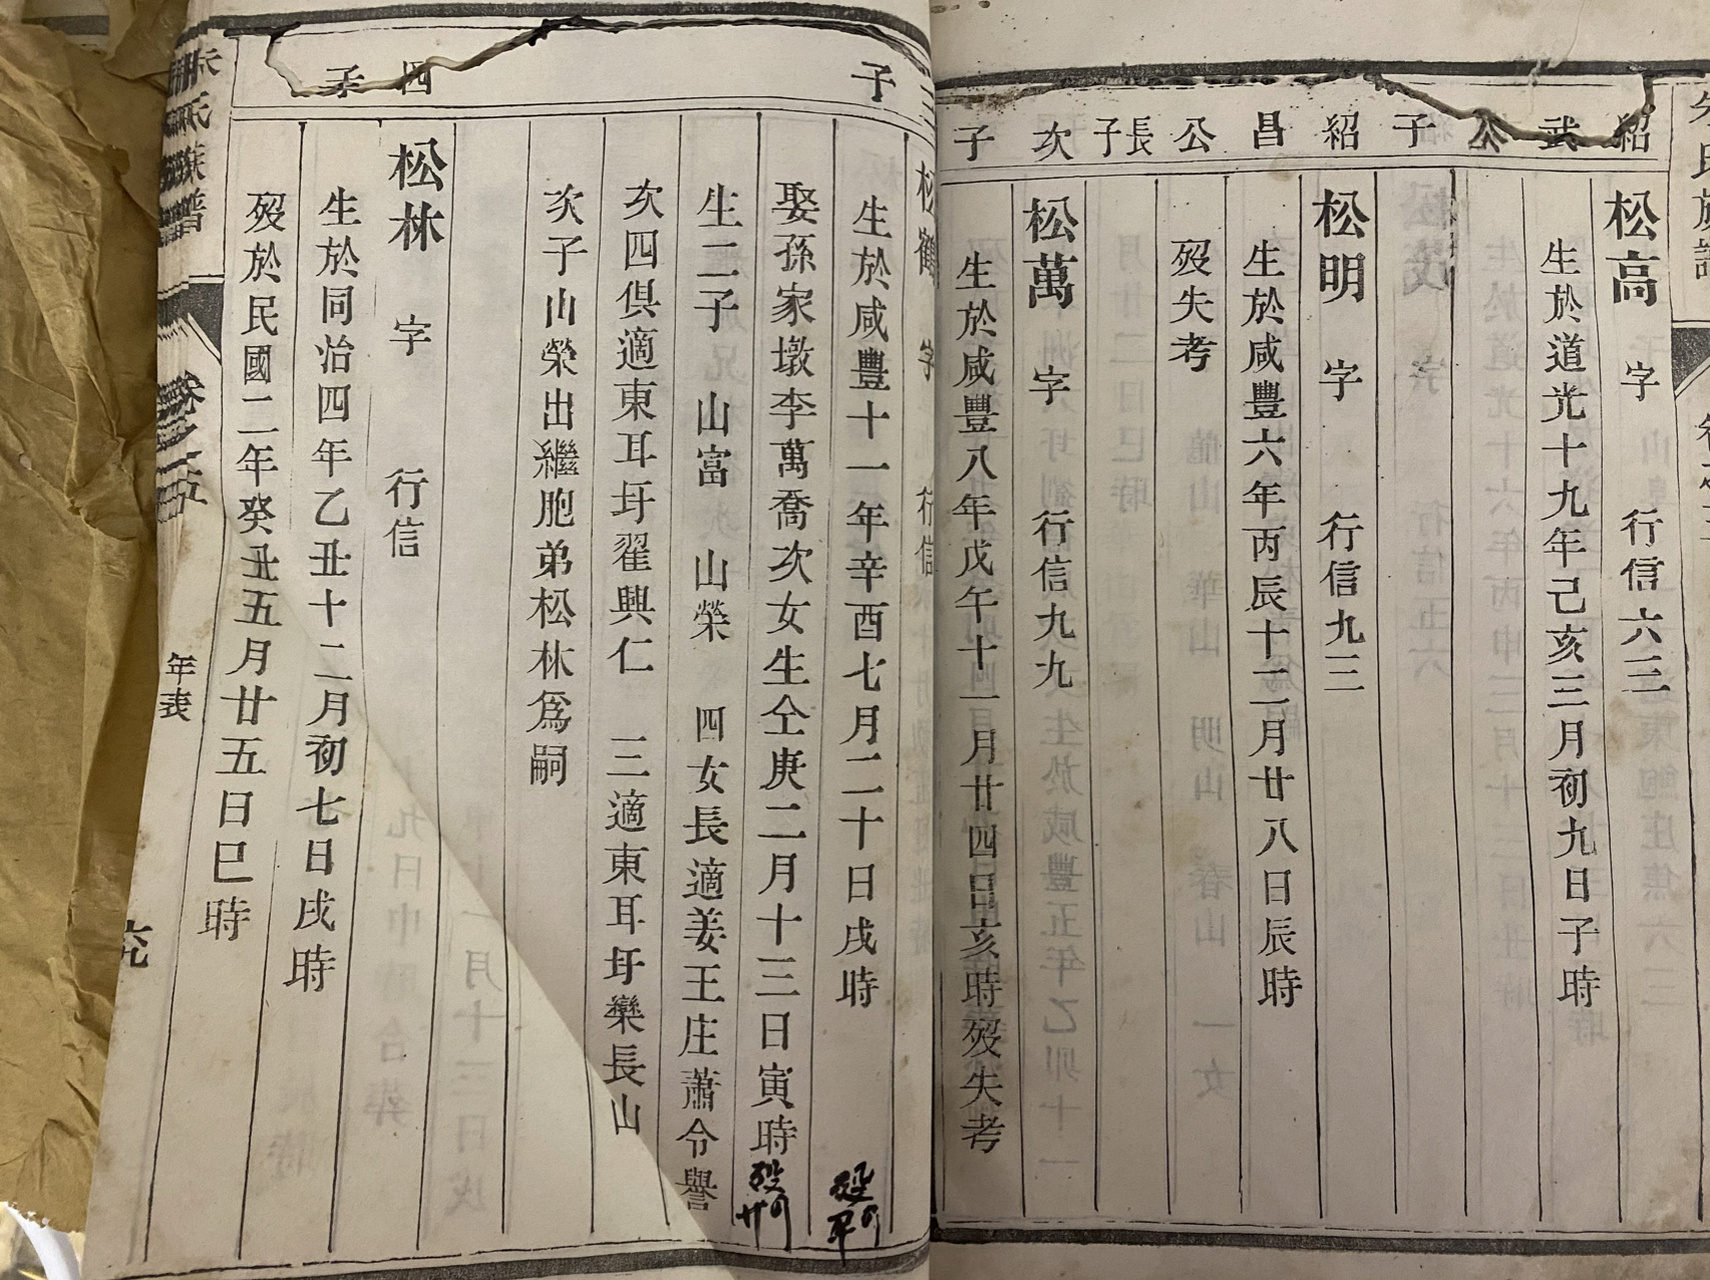 紹武公子
松高 字 行信六三
生於道光十九年己亥三月初九日子時
紹昌公長子
松明 字 行信九三
生於咸豐六年丙辰十二月廿八日辰時
歿失考
次子
松萬 字 行信九九
生於咸豐八年戊午十一月廿四日亥時歿失考
三子
松鶴 字 行信
生於咸豐十一年辛酉七月二十日戌時
娶孫家墩李萬喬次女生仝庚二月十三日寅時
生二子 山富 山榮 四女長適姜王庄蕭令譽
次四俱適東耳圩翟興仁 三適東耳圩欒長山
次子山榮出繼胞弟松林爲嗣
四子
松林 字 行信
生於同治四年乙丑十二月初七日戌時
歿於民國二年癸丑五月廿五日巳時
氏族譜
年表